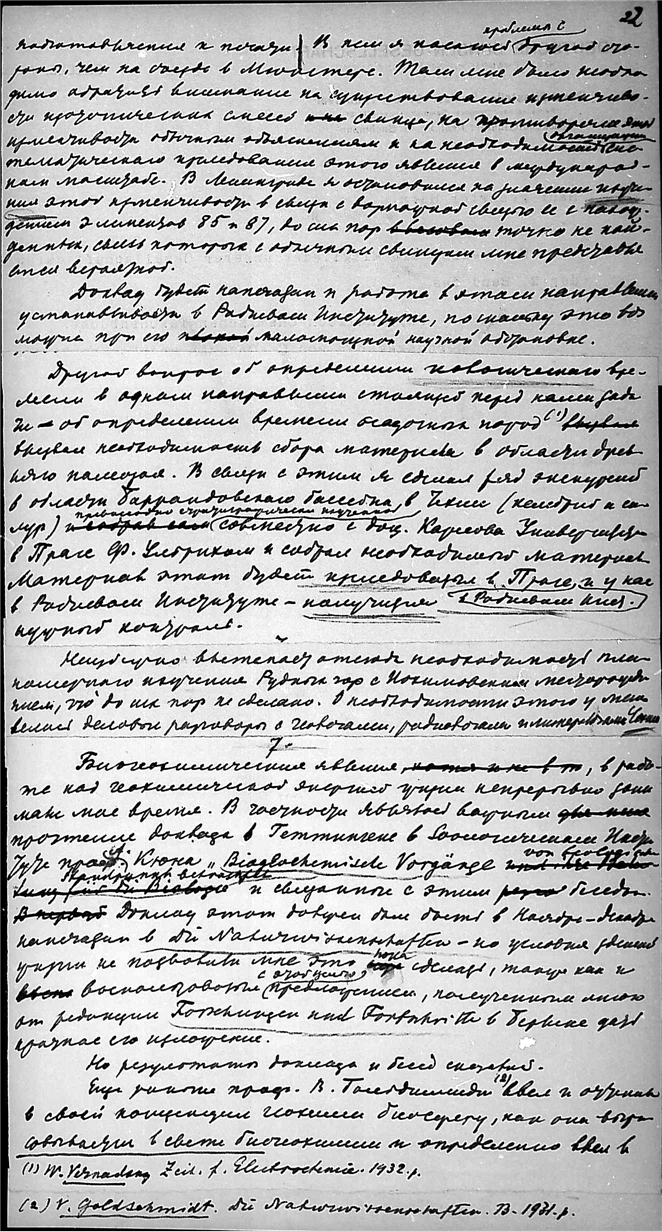 22
проблемы с
подготовляется к печати. В нем я касаюсь другой сто-
роны, чем на съезде в Мюнстере. Там мне было необхо-
димо обратить внимание на существование изменчиво-
сти изотопических смесей свинца, на противоречия этой
изменчивости обычным объяснениям и на необходимость
организации сис-
тематического исследования этого явления в международ-
ном масштабе. В Ленинграде я остановился на значении изуче-
ния этой изменчивости в связи с
элементов 85 и 87, до сих пор точно не най-
денных, связь которых с обычным свинцом мне представля-
ется вероятной.
Доклад будет напечатан и работа в этом направлении
устанавливается в Радиевом Институте, поскольку это воз-
можно при его маломощной научной обстановке.
Другой вопрос об определении геологического вре-
мени в одном направлении стоящей перед нами зада-
чи – об определении времени осадочных пород (1) вызвал
вызвал необходимость сбора материала в области древ-
него палеозоя. В связи с этим я сделал ряд экскурсий
в области Баррандовского бассейна в Чехии (кембрий и си-
лур) и совместно с доц. Карлова Университета
в Праге Ф. Ульрихом и собрал необходимый материал.
Материал этот будет исследоваться в Праге, и у нас
в Радиевом Институте – получится в Радиевом Инст.
нужный контроль.
Насущно вытекает отсюда необходимость пла-
номерного изучения Рудных гор с Иохимовским месторожде-
нием, что до сих пор не сделано. О необходимости этого у меня
велись деловые разговоры с геологами, радиологами и минералогами Чехии
7.
Биогеохимические явления, в рабо-
те над геохимической энергией жизни непрерывно зани-
мали мое время. В частности явилось важным
прочтение доклада в Геттингене в Зоологическом Инсти-
туте проф. Кюна „Biogeochemische Vorgänge
и связанные с этим беседы.
Доклад этот должен был быть в Ноябре-Декабре
напечатан в Die Naturwissenschaften – но условия
жизни не позволили мне это пока сделать, также как и
воспользоваться предложением, полученным мною
от редакции Forschungen und Fortschritte в Берлине дать
краткое его изложение.
Но результаты доклада и бесед
Еще раньше проф. В. Гольдшмидт (2) ввел и
в своей концепции геохимии биосферу, как она выри-
совывается в свете биогеохимии и определенно ввел в
(1) W. Vernadsky Zeit. f. Elektrochemie. 1932. р.
(2) V. Goldschmidt. Die Naturwissenschaften. B. 1931. р.